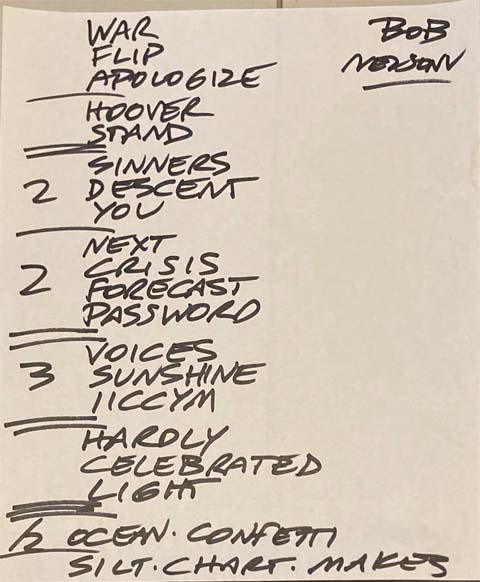 WAR
FLIP
APOLOGIZE
HOOVER
STAND
SINNERS
2 DESCENT
YOU
NEXT
CRISIS
2 FORECAST
PASSWORD
VOICES
3 SUNSHINE
IICCYM
HARDLY
CELEBRATED
LIGHT
/2 OCEAN. CONFETTI
SILT. CHART. MAKES
BOB
NELSON